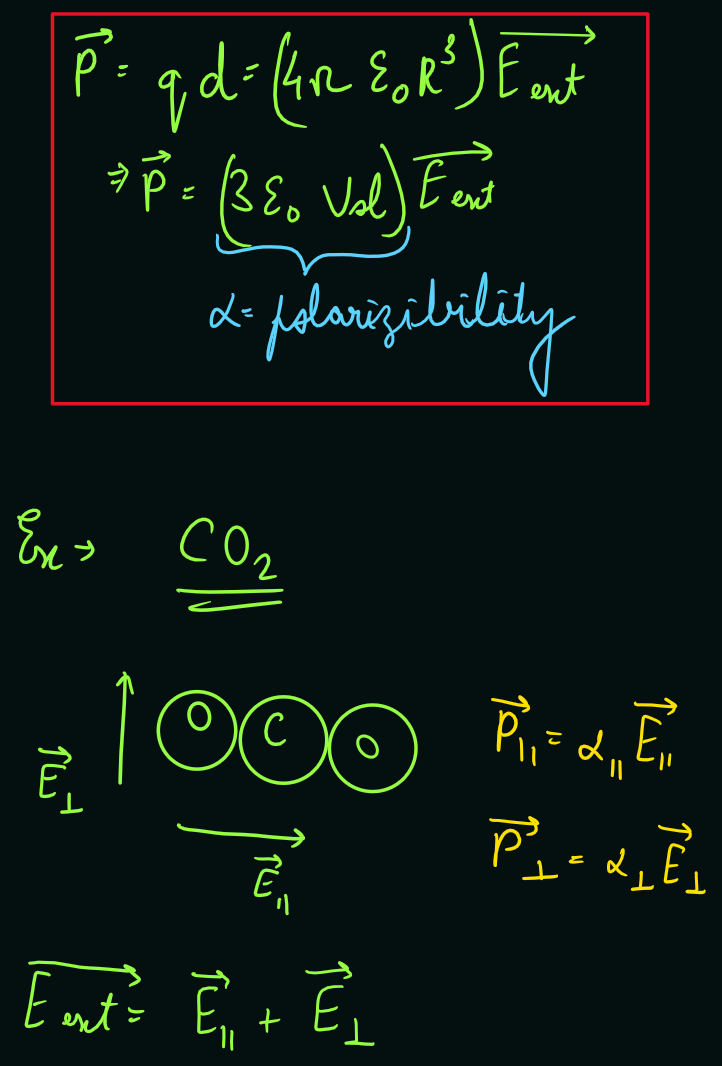 P⃗ = q d = (4π ε₀ R³) E⃗ ext
⇒ P⃗ = (3 ε₀ Vol) E⃗ ext
α = polarizibility
Ex → CO₂
O C O
E⃗⊥
E⃗||
P⃗|| = α|| E⃗||
P⃗⊥ = α⊥ E⃗⊥
E⃗ ext = E⃗|| + E⃗⊥